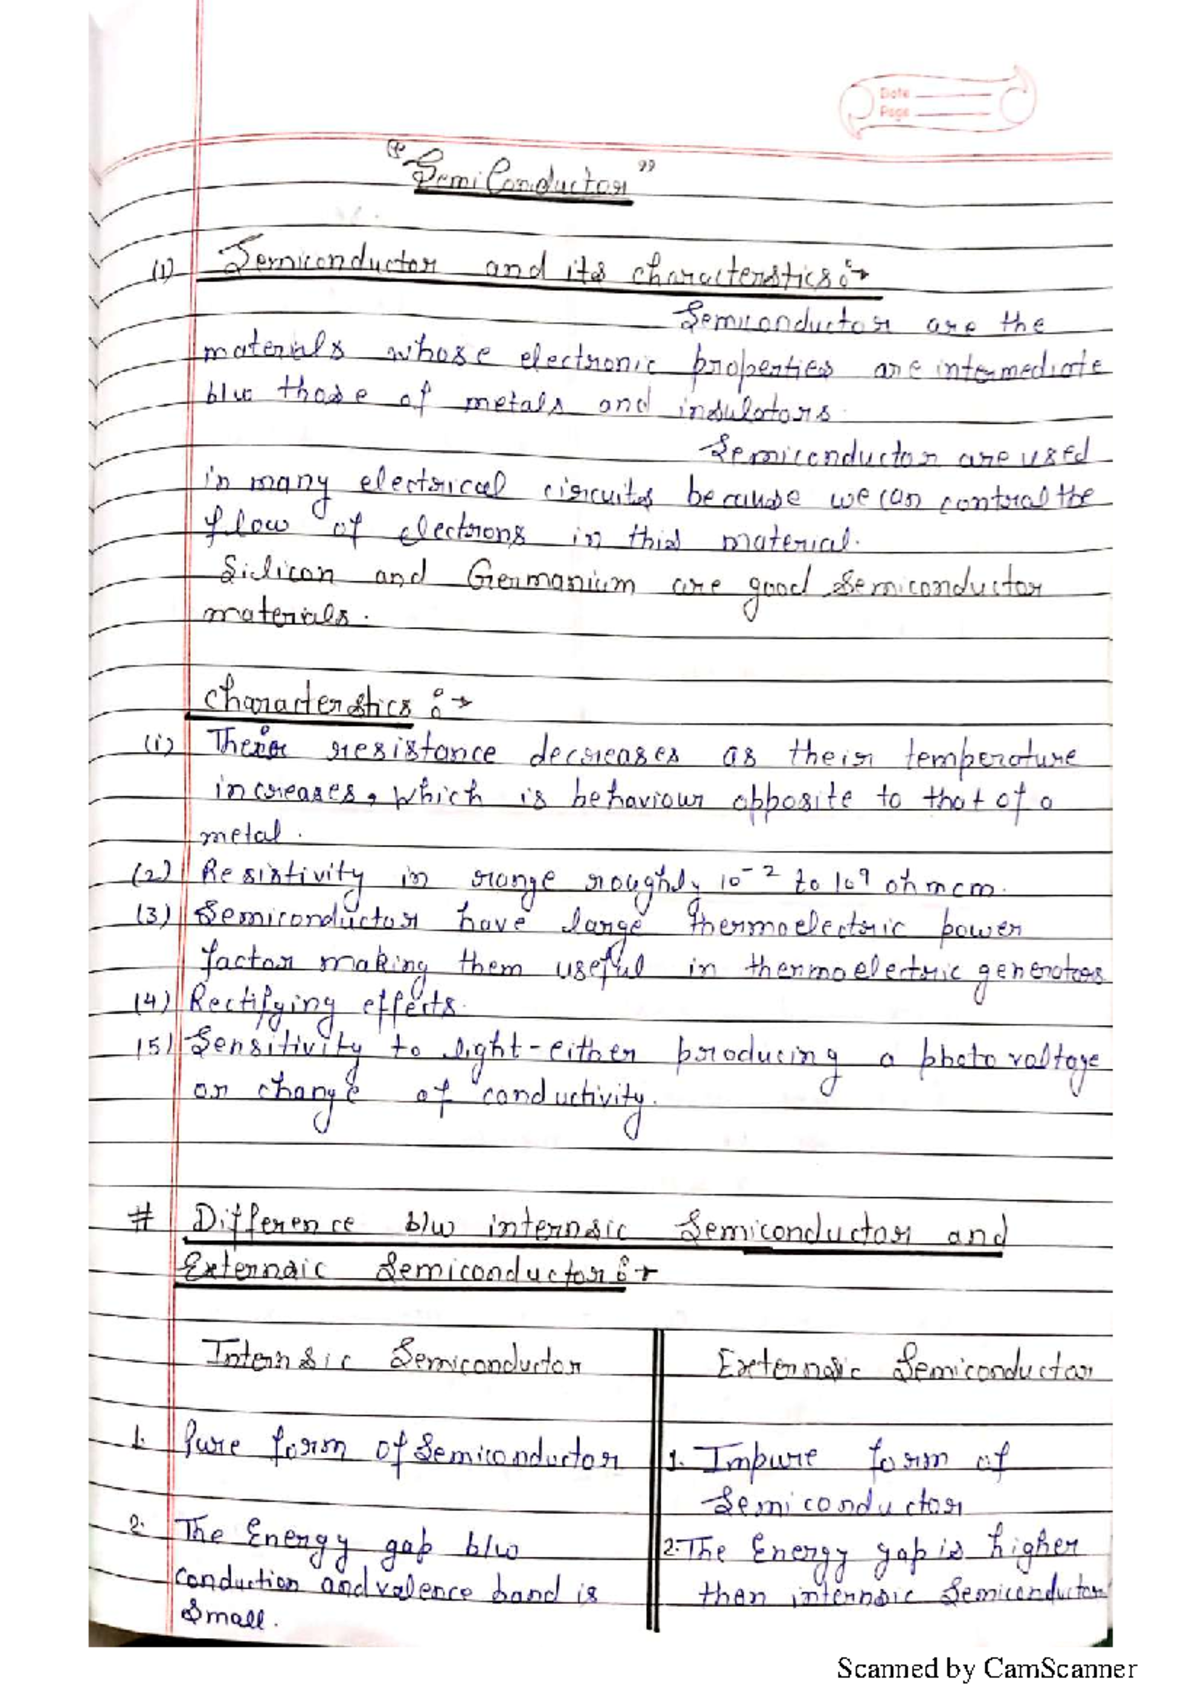 Date
Page
"SemiConductor"
(1) Semiconductor and its characterstics:→
Semiconductor are the
materials whose electronic properties are intermediate
b/w those of metals and insulators.
Semiconductor are used
in many electrical circuits because we can control the
flow of electrons in this material.
Silicon and Germanium are good semiconductor
materials.
Characterstics:→
(1) Their resistance decreases as their temperature
increases, which is behaviour opposite to that of a
metal.
(2) Resistivity in range roughly 10⁻² to 10⁹ ohmcm.
(3) Semiconductor have large thermoelectric power
factor making them useful in thermoelectric generators
(4) Rectifying effects.
(5) Sensitivity to light-either producing a photovoltage
or change of conductivity.
# Difference b/w internsic Semiconductor and
Externsic Semiconductor:→
Internsic Semiconductor
Externsic Semiconductor
1. Pure form of Semiconductor
1. Impure form of
Semiconductor
2. The Energy gap b/w
conduction and valence band is
Small.
2. The Energy gap is higher
then internsic Semiconductor
Scanned by CamScanner